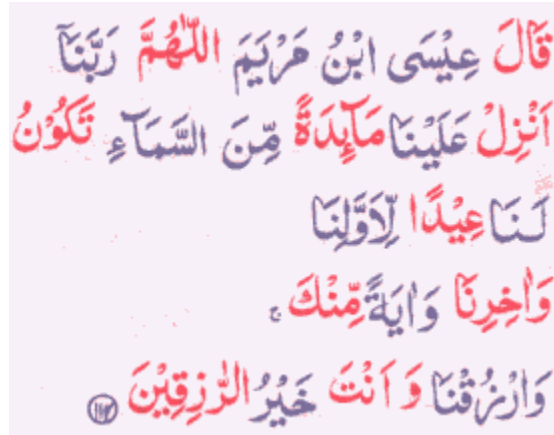 قَالَ عِيْسَى ابْنُ مَرْيَمَ اللّٰهُمَّ رَبَّنَاۤ
اَنْزِلْ عَلَيْنَا مَآئِدَةً مِّنَ السَّمَآءِ تَكُوْنُ
لَـنَا عِيْدًا لِّاَوَّلِنَا
وَاٰخِرِنَا وَاٰيَةً مِّنْكَ ۚ
وَارْزُقْنَا وَاَنْتَ خَيْرُ الرّٰزِقِيْنَ ﴿۱۱۴﴾